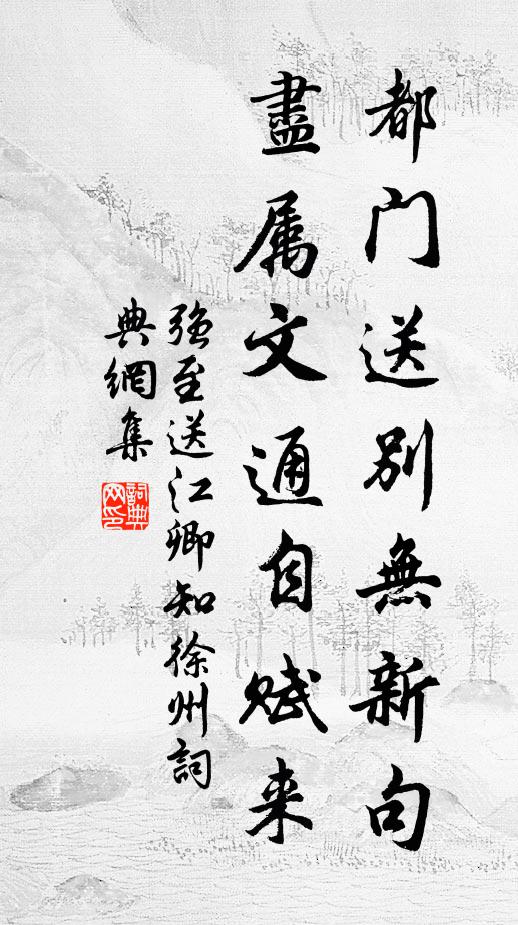 都门送别無新句
盡属文通自赋来
强至送江卿知徐州詞
典網集
詞典网印